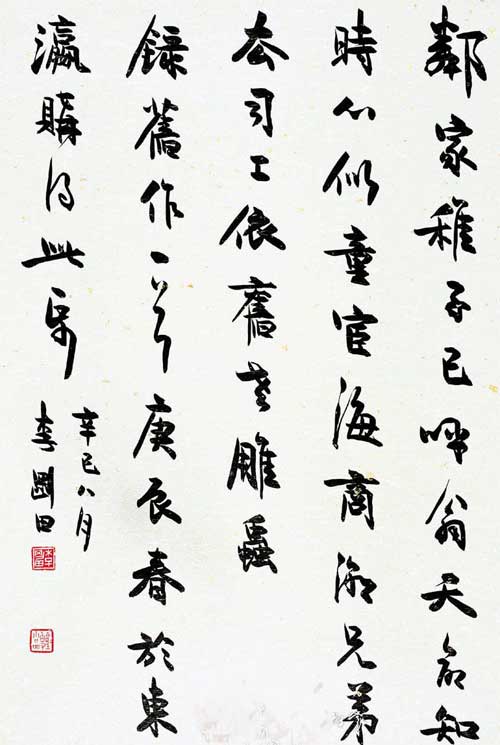 鄰家稚子已呼翁天命知
時心似童宦海商潮兄弟
去司工依舊老雕蟲
錄舊作一首庚辰春於東
瀛購得此帋
辛巳八月
李剛田